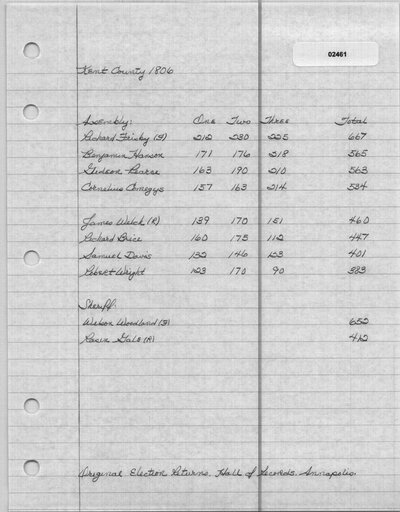 02461
Kent County 1806
Assembly: One Two Three Total
Richard Frisby (F) 212 230 225 667
Benjamin Hanson 171 176 218 565
Gideon Pearce 163 190 210 563
Cornelius Comegys 157 163 214 534
James Welch (R) 139 170 151 460
Richard Brice 160 175 112 447
Samuel Davis 132 146 123 401
Robert Wright 123 170 90 383
Sheriff:
Woodland (F) 652
Gale (R) 412
Original Election Returns, Hall of Records, Annapolis.